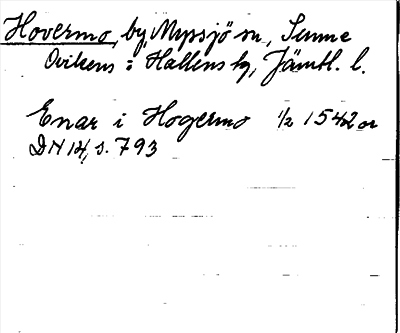 Hovermo, by, Myssjö sn, Sunne
Ovikens o Hallens tg, Jämtl. l.
Enar i Hogermo 1/2 1542 or
DN 14, s. 793